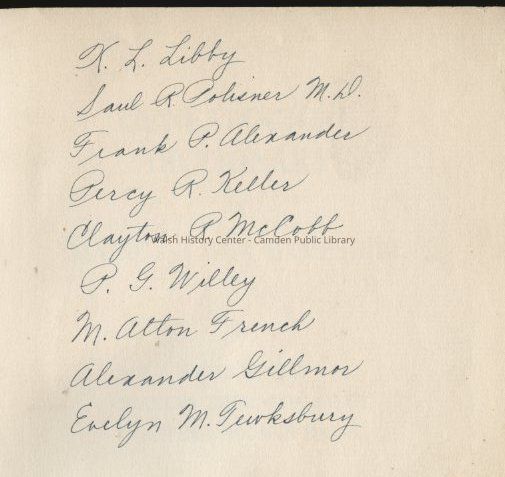 K. L. Libby
Saul R. Polisner M.D.
Frank P. Alexander
Percy R. Keller
Clayton R McCobb
Walsh History Center - Camden Public Library
P. G. Willey
M. Alton French
Alexander Gillmor
Evelyn M. Tewksbury